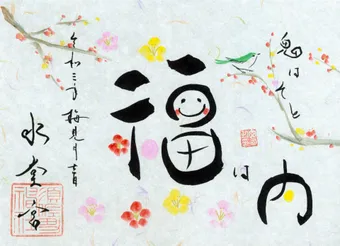 鬼はそと
福は内
令和三年 梅見月吉日